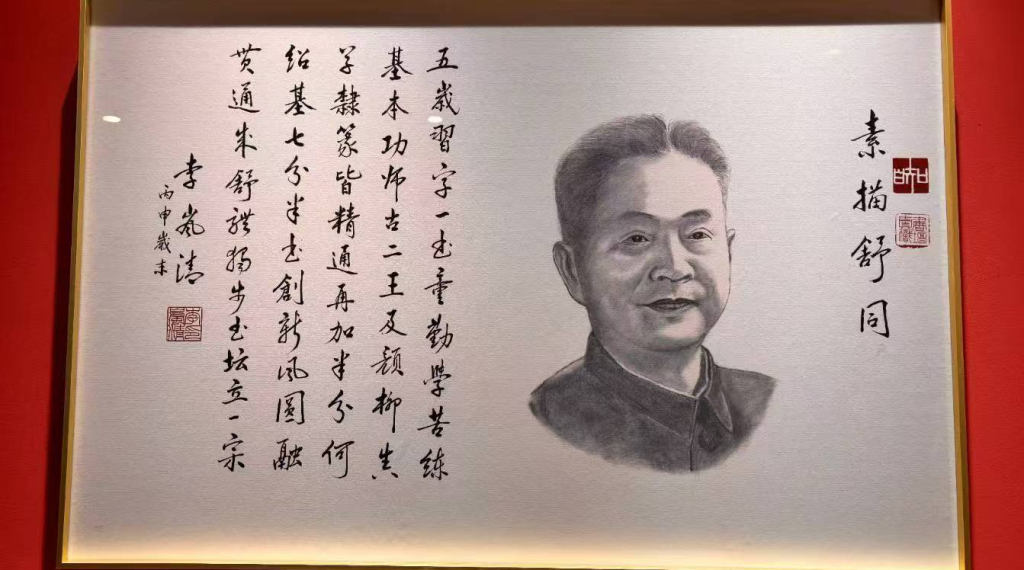 素描舒同
五歲習字一书童勤學苦练
基本功师古二王及颜柳真
草隸篆皆精通再加半分何
绍基七分半书創新风圓融
贯通成舒體独步书坛立一宗
李岚清
丙申歲末